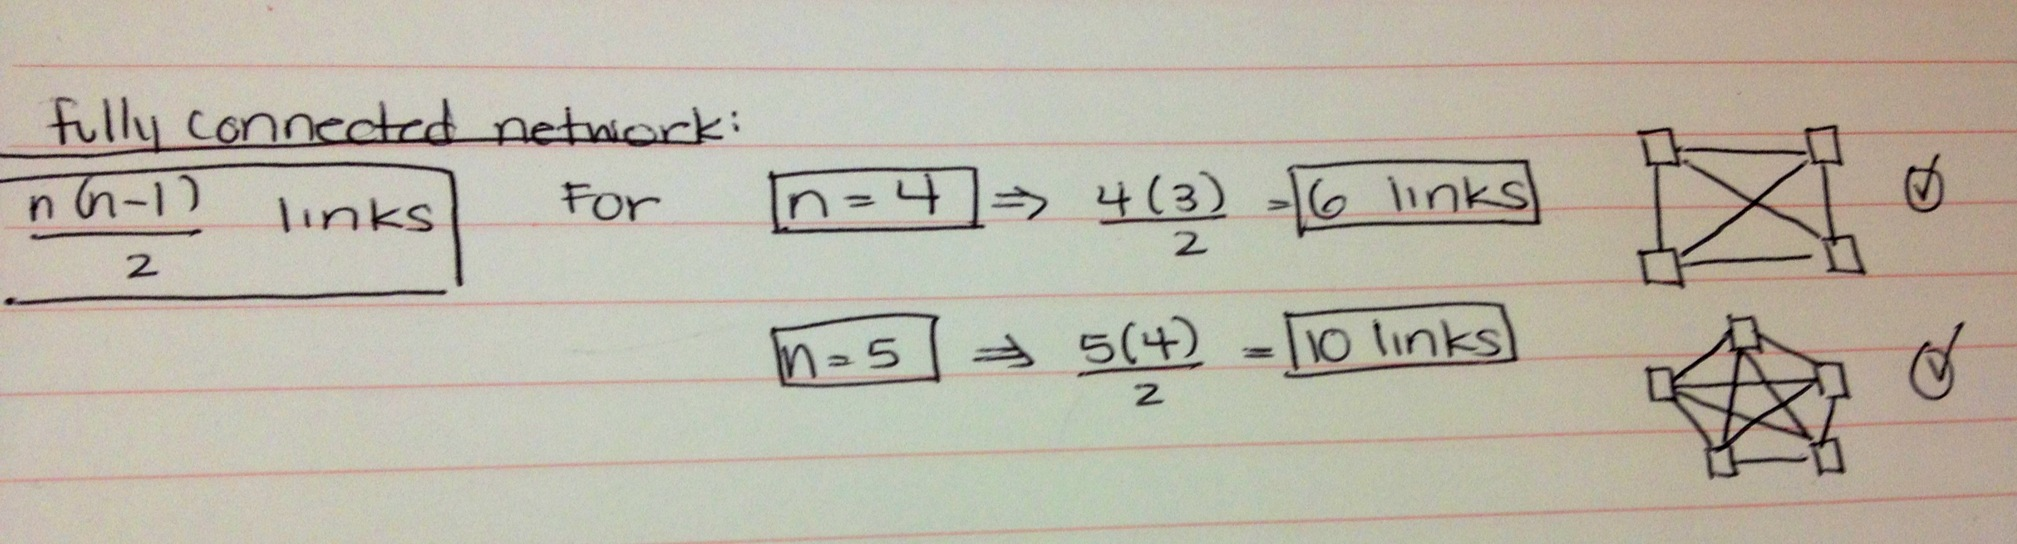 fully connected network:
n(n-1)/2 links For n = 4 ⇒ 4(3)/2 = 6 links
n = 5 ⇒ 5(4)/2 = 10 links